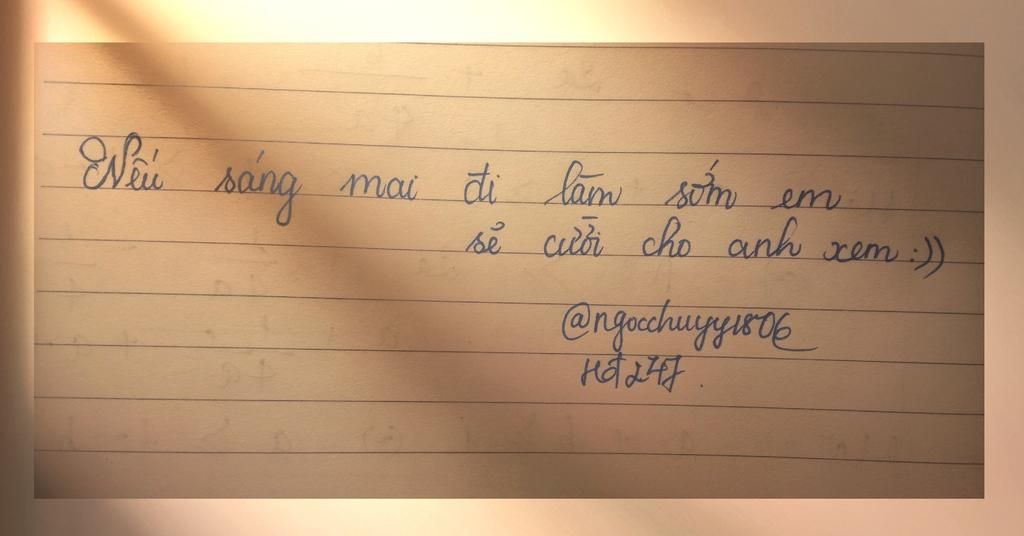 Nếu sáng mai đi làm sớm em
sẻ cười cho anh xem :))
@ngocchuyy1806
Hđ 247.